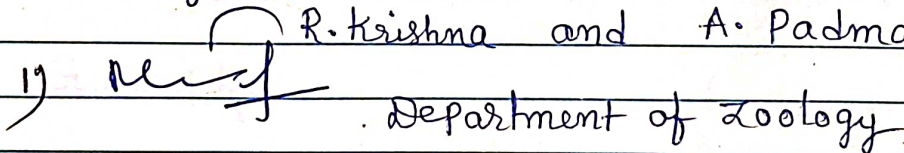 R. Krishna and A. Padma
1)
Department of Zoology